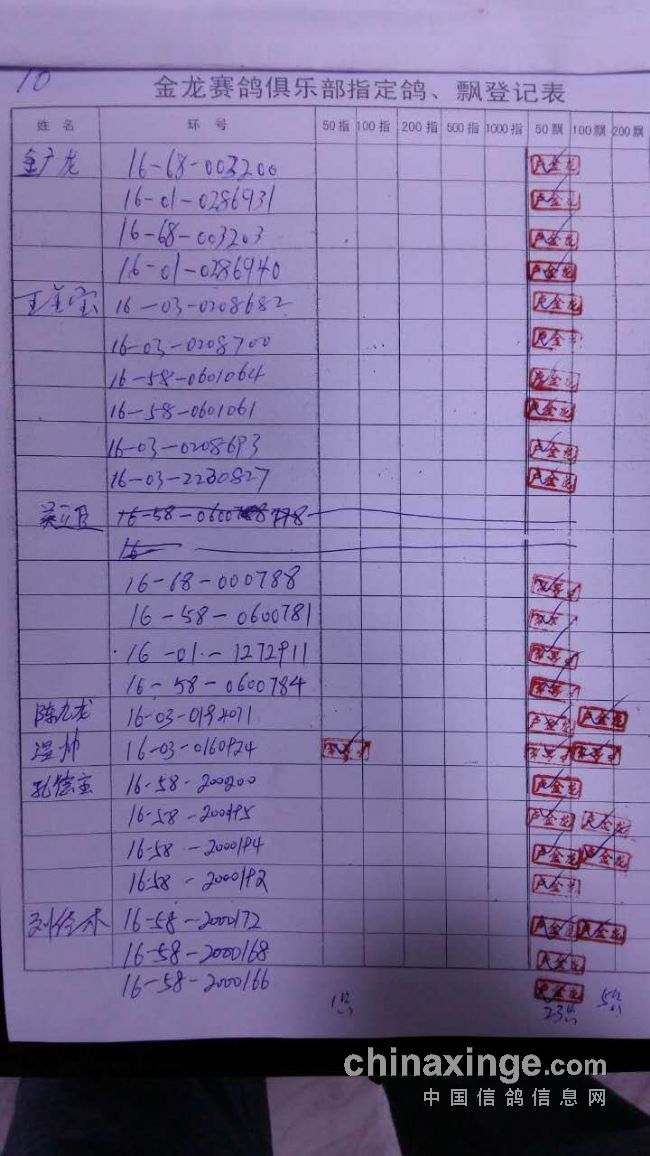 10
金龙赛鸽俱乐部指定鸽、飘登记表
姓名 环号 50指 100指 200指 500指 1000指 50飘 100飘 200飘
16-68-003200 卢金龙
16-01-0286931 卢金龙
16-68-003203 卢金龙
16-01-0286940 卢金龙
16-03-0208682 卢金龙
16-03-0208700
16-58-0601064 卢金龙
16-58-0601061 卢金龙
16-03-0208693 卢金龙
16-03-2230827 卢金龙
16-58-0600
16
16-68-000788
16-58-0600781
16-01-1272911
16-58-0600784
陈九龙 16-03-0194071 卢金龙 卢金龙
温帅 16-03-0160924
孔德宝 16-58-200200 卢金龙
16-58-200195 卢金龙 卢金龙
16-58-2000194 卢金龙 卢金龙
16-58-2000192
刘佳木 16-58-2000172 卢金龙 卢金龙
16-58-2000168 卢金龙
16-58-2000166 卢金龙
1 23 5
chinaxinge.com
中国信鸽信息网